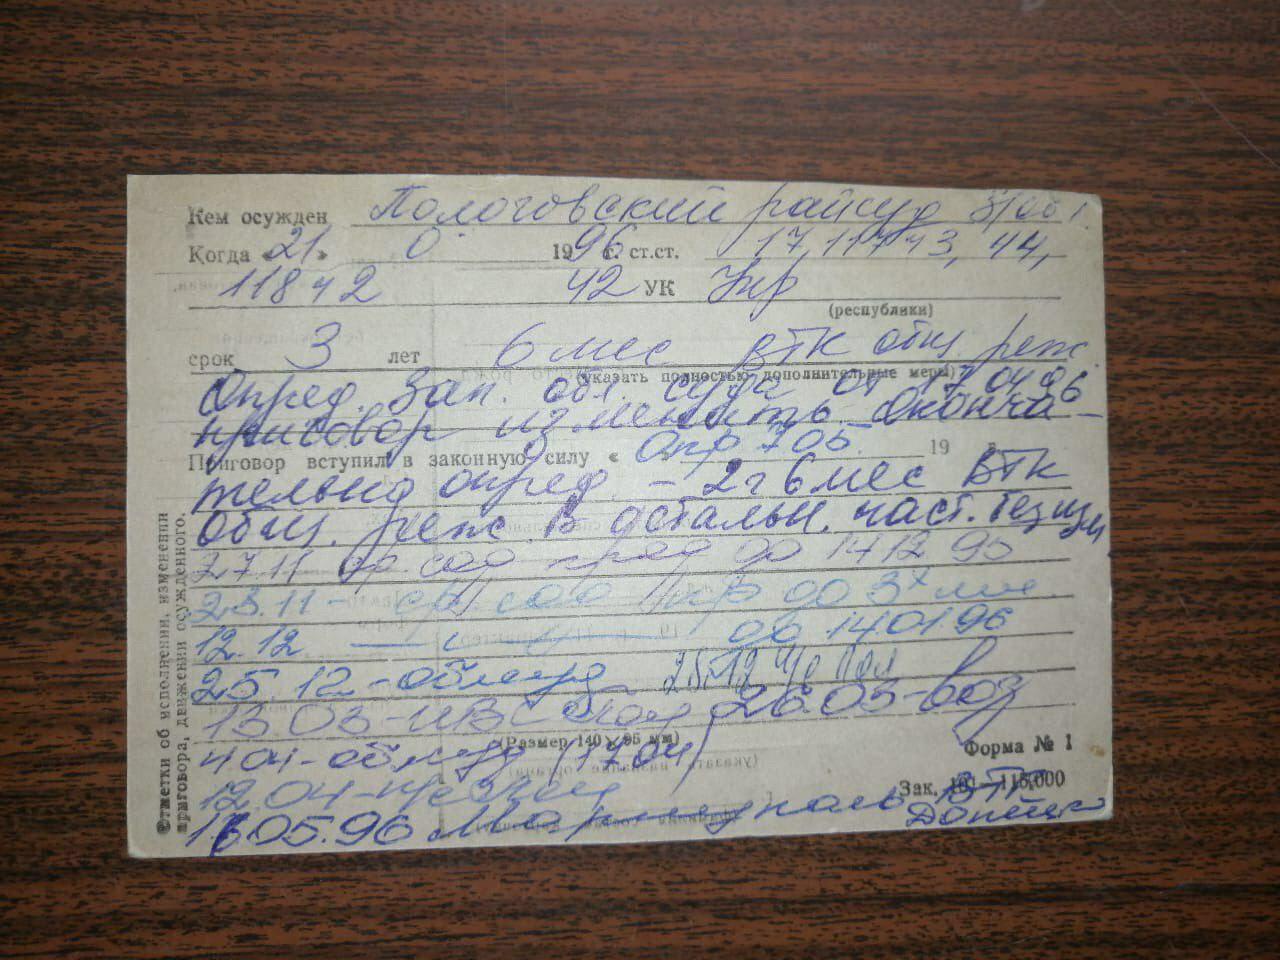 Кем осужден Пологовский райсуд З/обл
Когда «21» 0 1996 г. ст.ст. 17, 117 ч 3, 44,
118 ч 2 42 УК Укр
(республики)
срок 3 лет 6 мес ВТК общ. реж.
(указать полностью дополнительные меры)
Опред. Зап. обл. суда от 17 04 96
приговор изменить. Оконча-
Приговор вступил в законную силу « Опр 705 19 г.
тельно опред. – 2 г 6 мес ВТК
общ. реж. В остальн. част. без изм
27.11 ср. сод прод до 14 12 95
23.11 – ср сод пр до 3х мес.
12.12 — " — до 14 01 96
25.12 – облсуд 25.12
13.03 – ИВС 26.03 – воз
(Размер 140×95 мм)
4 04 – облсуд (17 04)
Форма № 1
12.04
Зак. 115.000
16.05.96 Мариуполь ВТК
Донецк
Отметки об исполнении, изменении
приговора, движении осужденного.